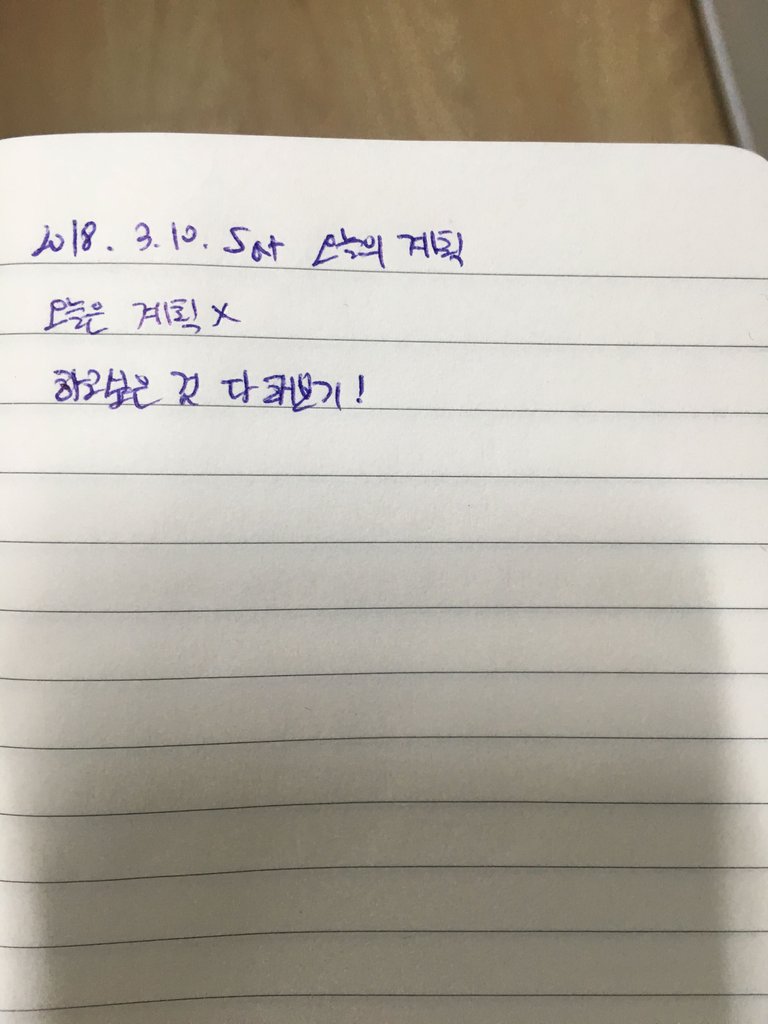 2018. 3. 10. Sat 오늘의 계획
오늘은 계획 X
하고싶은 것 다 해보기!